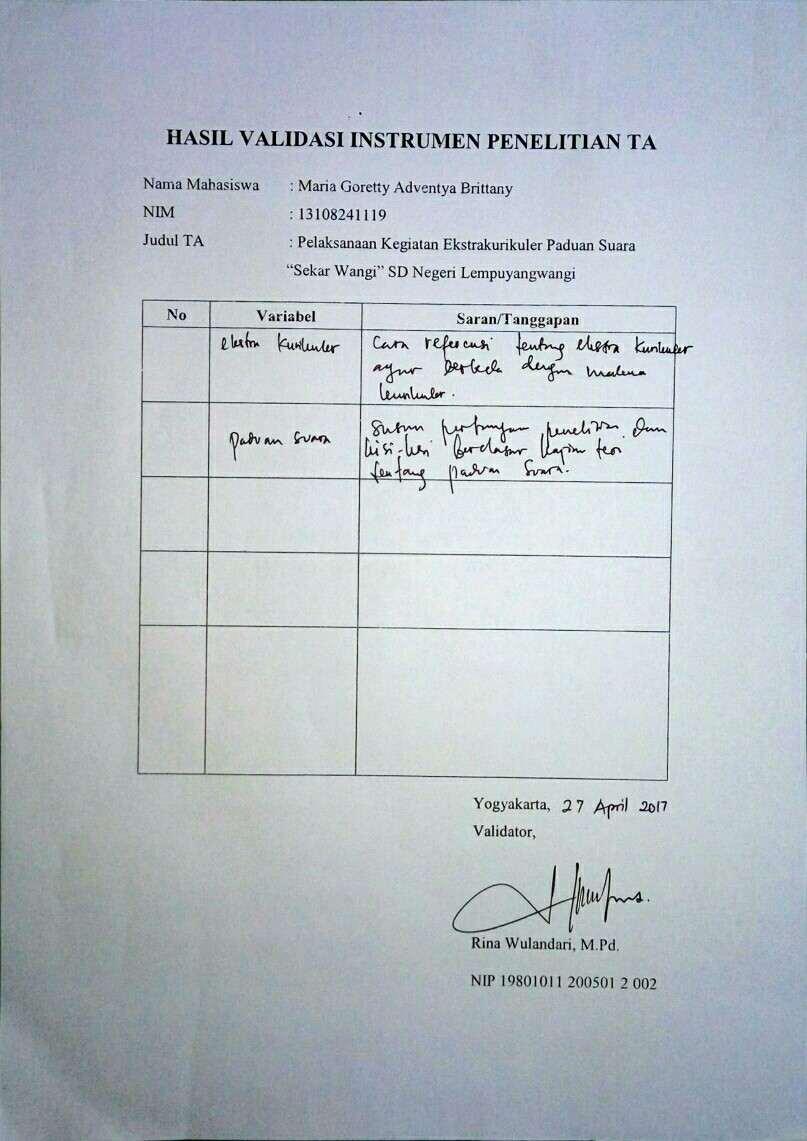 HASIL VALIDASI INSTRUMEN PENELITIAN TA
Nama Mahasiswa : Maria Goretty Adventya Brittany
NIM : 13108241119
Judul TA : Pelaksanaan Kegiatan Ekstrakurikuler Paduan Suara
“Sekar Wangi” SD Negeri Lempuyangwangi
No Variabel Saran/Tanggapan
ekstra kurikuler Cara referensi tentang ekstra kurikuler
berbeda dengan makna
kurikuler.
paduan suara Susun pertanyaan penelitian dan
kisi-kisi Berdasar kajian teori
tentang paduan Suara.
Yogyakarta, 27 April 2017
Validator,
Rina Wulandari, M.Pd.
NIP 19801011 200501 2 002